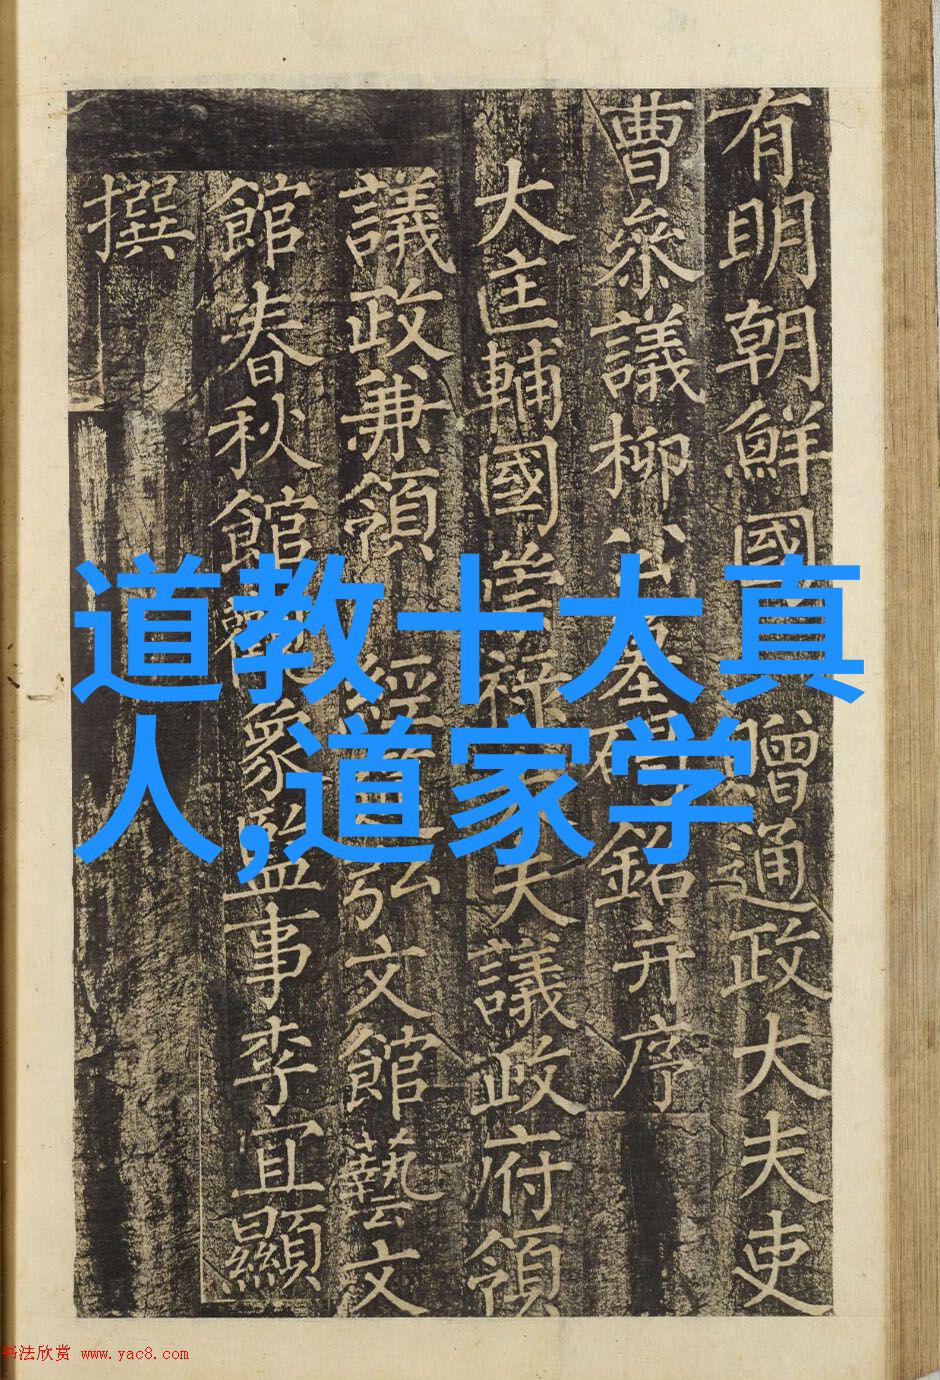 有明朝鮮國贈通政大夫吏
曹參議柳公墓碣銘并序
大匡輔國崇祿大夫議政府領
議政兼領經筵弘文館藝文
館春秋館觀象監事李宜顯
撰
道教十大真
人,道家学
书法欣赏 www.yac8.com